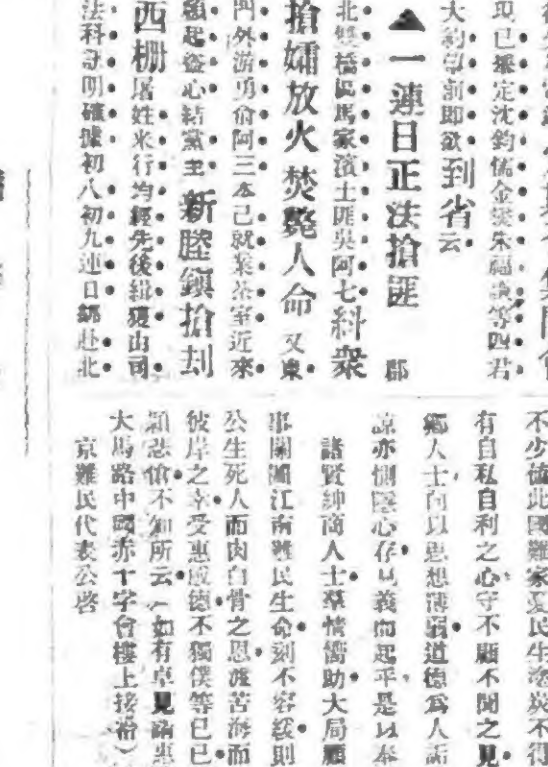 現已採定沈鈞儒金燮朱福詵等四君
大約年前即欲到省云
▲一連日正法搶匪 郡
北雙橋區馬家濱土匪吳阿七糾衆
搶孀放火焚斃人命又東
門外游勇俞阿三本已就業茶室近來
頓起盜心結黨至新塍鎮搶刦
西柵屠姓米行均經先後緝獲由司
法科訊明確據初八初九連日綁赴北
不少值此國難家憂民生塗炭不得
有自私自利之心守不顧不聞之見
鄉人士向以思想薄弱道德爲人詬
諒亦惻隱心存見義而起乎是以奉
諸賢紳商人士羣情嚮助大局願
事關江南難民生命刻不容緩則
公生死人而肉白骨之恩渡苦海而
彼岸之幸受惠感德不獨僕等已已
悲愴不知所云（如有卓見請惠
大馬路中國赤十字會樓上接洽）
京難民代表公啓